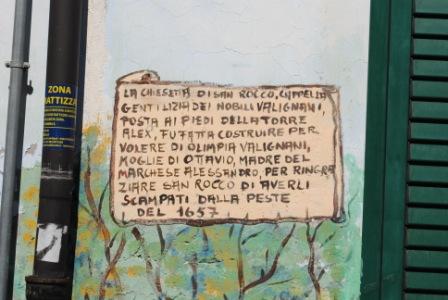 ZONA
ATTIZZA
LA CHIESETTA DI SAN ROCCO, CAPPELLA
GENTILIZIA DEI NOBILI VALIGNANI,
POSTA AI PIEDI DELLA TORRE
ALEX, FU FATTA COSTRUIRE PER
VOLERE DI OLIMPIA VALIGNANI,
MOGLIE DI OTTAVIO, MADRE DEL
MARCHESE ALESSANDRO, PER RINGRA
ZIARE SAN ROCCO DI AVERLI
SCAMPATI DALLA PESTE
DEL 1657